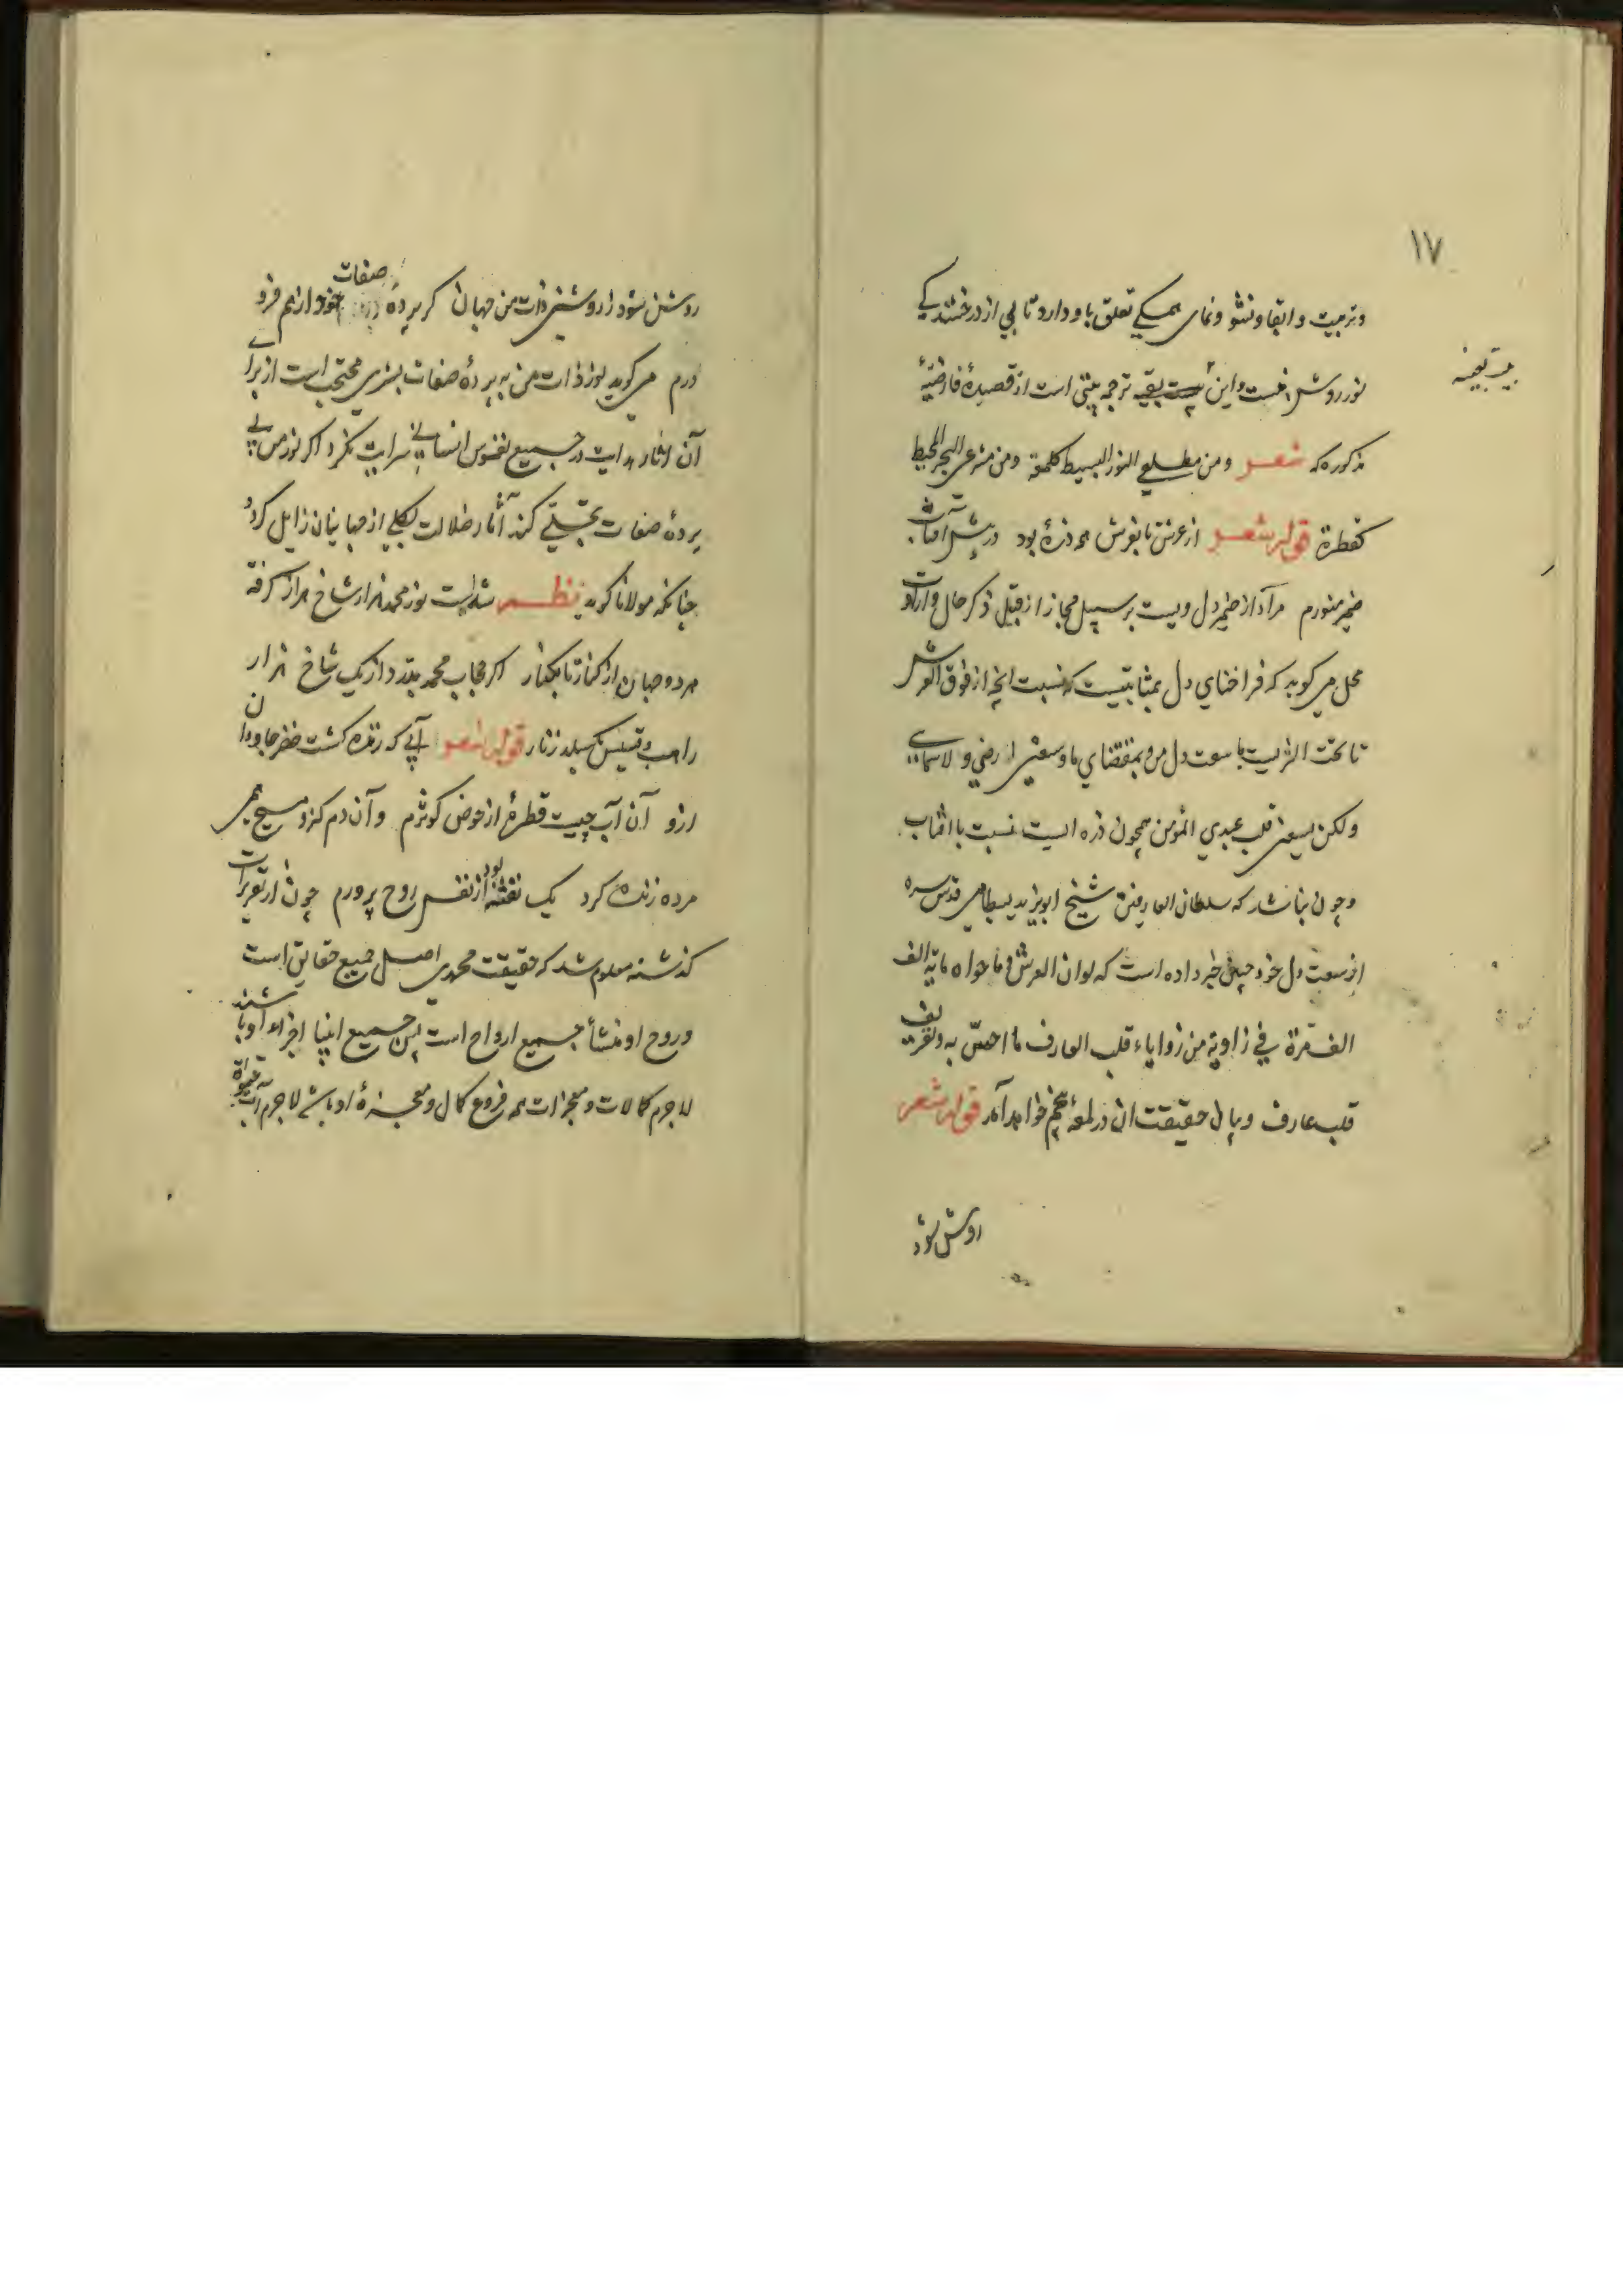 ۱۷
وتربیت وابقا ونشو ونمای همکی تعلق باو دارد تابی از درخشندکی
نور روشن است واین بیت بقیه ترجمه بیتی است از قصیدهٔ فارضیهٔ
بیت بعینه
مذکوره که شعر ومن مطلعی النور البسیط کلمعة ومن مشرعی البحر المحیط
کقطرة قوله شعر از عرش تا بفرش همه ذرهٔ بود در پیش آفتاب
ضمیر منورم مراد از ضمیر دل ویست بر سبیل مجاز از قبیل ذکر حال وارادت
محل می کوید که فراخنای دل بمثابتیست که نسبت انچه از فوق العرش
تا تحت الثریست با سعت دل من وبمقتضای ما وسعنی ارضی ولا سمایی
ولکن یسعنی قلب عبدی المؤمن همچون ذره ایست نسبت با افتاب
وچون نباشد که سلطان العارفین شیخ ابویزید بسطامی قدس سره
از سعت دل خود چنین خبر داده است که لو ان العرش وما حواه مایة الف
الف مرة فی زاویة من زوایاء قلب العارف ما احسّ به وتعریف
قلب عارف وبیان حقیقت ان در لمعهٔ پنجم خواهد آمد قوله شعر
روشن شود
روشن شود ز روشنی ذات من جهان کر پردهٔ صفات خود از هم فرو
درم می کوید نور ذات من به پردهٔ صفات بشری محتجب است از برای
آن اثار هدایت در جمیع نفوس انسانی سرایت نکرد اکر نور من بی
پردهٔ صفات تجلّی کند آثار ضلالت بکلی از جهانیان زایل کردد
چنانکه مولانا کوید نظم شد است نور محمد هزار شاخ هزار کرفته
هر دو جهان از کنار تا بکنار اکر حجاب محمد بدرد از یک شاخ هزار
راهب وقسیس بکسلد زنار قوله شعر آبی که زنده کشت خضر جاودان
ازو آن آب چیست قطرهٔ از حوض کوثرم وآن دم کزو مسیح همی
مرده زنده کرد یک نفخه بود از نفس روح پرورم چون از تقریرات
کذشته معلوم شد که حقیقت محمدی اصل جمیع حقایق است
وروح او منشأ جمیع ارواح است پس جمیع انبیا اجزاء او باشند
لاجرم کمالات ومعجزات همه فروع کمال ومعجزهٔ او باشد لاجرم آب حیوة